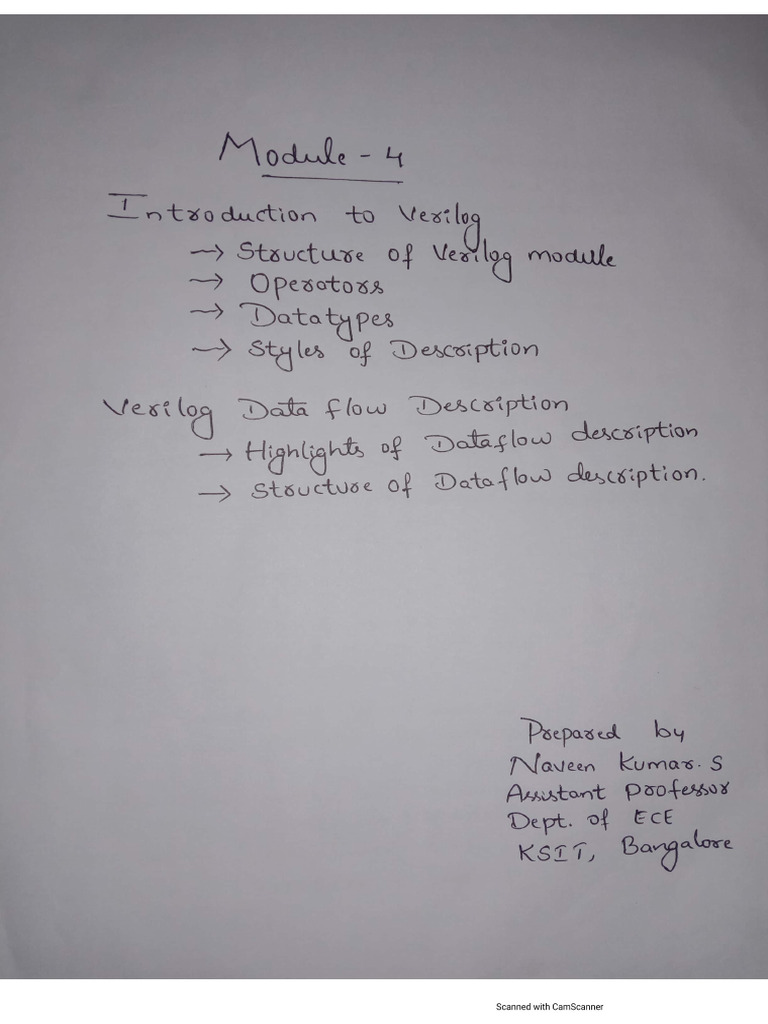 Module - 4
Introduction to Verilog
→ Structure of Verilog module
→ Operators
→ Datatypes
→ Styles of Description
Verilog Data flow Description
→ Highlights of Dataflow description
→ Structure of Dataflow description.
Prepared by
Naveen Kumar. S
Assistant Professor
Dept. of ECE
KSIT, Bangalore
Scanned with CamScanner